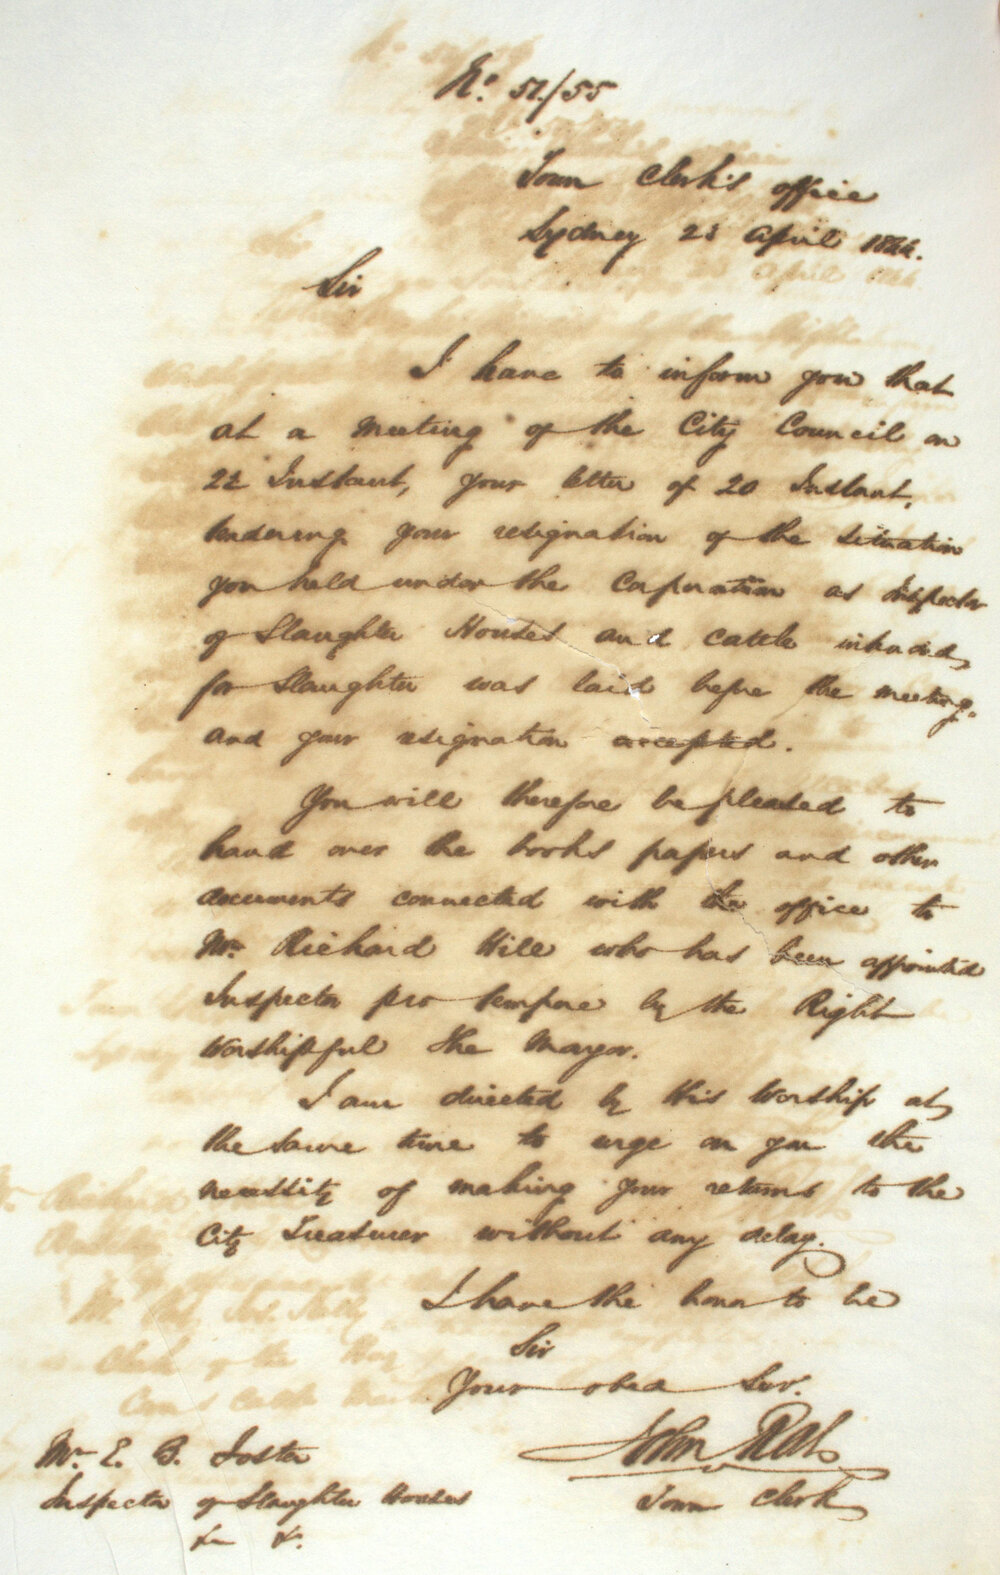 No. 51./55
Town Clerk's office
Sydney 23 April 1844.
Sir
I have to inform you that
at a meeting of the City Council on
22 Instant, your letter of 20 Instant,
tendering your resignation of the situation
you held under the Corporation as Inspector
of Slaughter Houses and cattle intended
for Slaughter was laid before the meeting,
and your resignation accepted.
You will therefore be pleased to
hand over the books papers and other
documents connected with the office to
Mr. Richard Hill who has been appointed
Inspector pro tempore by the Right
Worshipful the Mayor.
I am directed by His Worship at
the same time to urge on you the
necessity of making your returns to the
City Treasurer without any delay.
I have the honor to be
Sir
Your obed Ser.
John Rae
Town Clerk
Mr. E. B. Foster
Inspector of Slaughter Houses
&c &c.